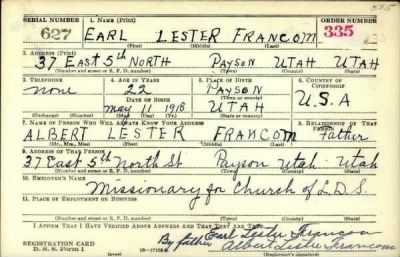 335
SERIAL NUMBER 1. NAME (Print) ORDER NUMBER
627 EARL LESTER FRANCOM 335
(First) (Middle) (Last)
2. ADDRESS (Print)
37 EAST 5th NORTH PAYSON UTAH UTAH
(Number and street or R. F. D. number) (Town) (County) (State)
3. TELEPHONE 4. AGE IN YEARS 5. PLACE OF BIRTH 6. COUNTRY OF CITIZENSHIP
none 22 PAYSON U.S.A
DATE OF BIRTH (Town or county)
MAY 11 1918 UTAH
(Exchange) (Number) (Mo.) (Day) (Yr.) (State or country)
7. NAME OF PERSON WHO WILL ALWAYS KNOW YOUR ADDRESS 8. RELATIONSHIP OF THAT PERSON
ALBERT LESTER FRANCOM Father
(Mr., Mrs., Miss) (First) (Middle) (Last)
9. ADDRESS OF THAT PERSON
37 East 5th North St Payson Utah Utah
(Number and street or R. F. D. number) (Town) (County) (State)
10. EMPLOYER'S NAME
Missionary for Church of L.D.S.
11. PLACE OF EMPLOYMENT OR BUSINESS
(Number and street or R. F. D. number) (Town) (County) (State)
I AFFIRM THAT I HAVE VERIFIED ABOVE ANSWERS AND THAT THEY ARE TRUE.
Earl Lester Francom
REGISTRATION CARD By father Albert Lester Francom
D. S. S. Form 1 (Registrant's signature)